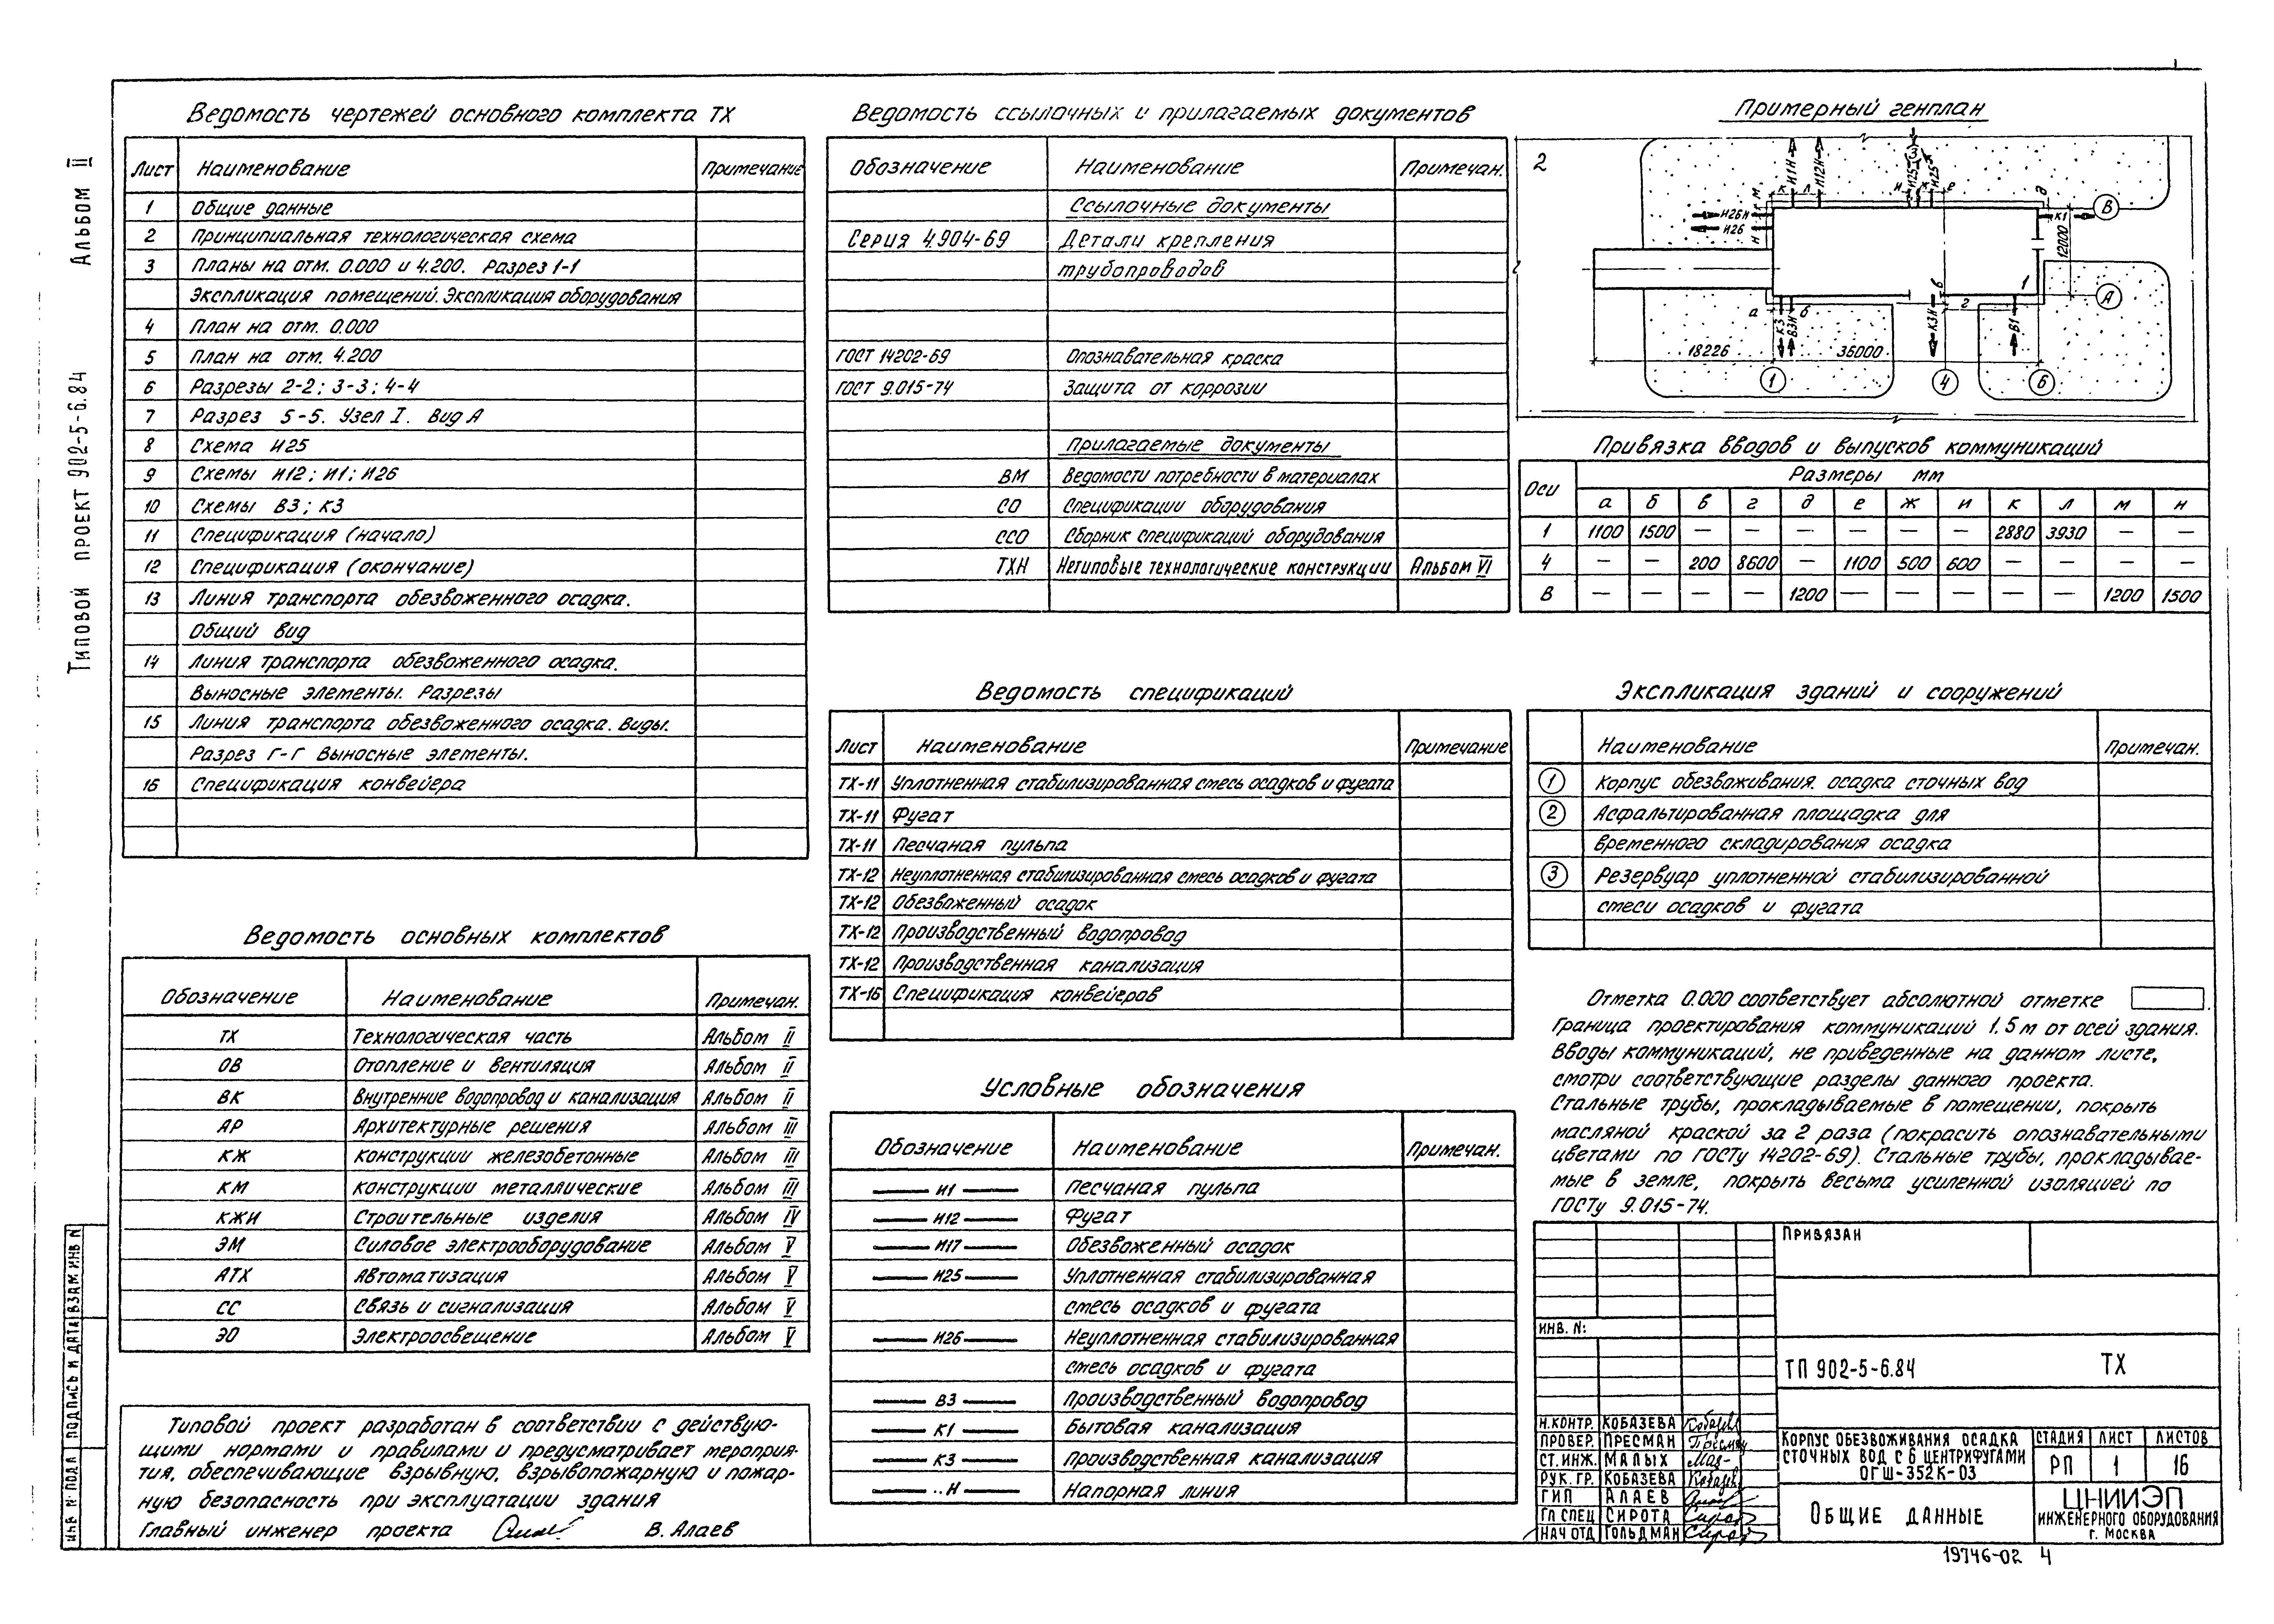 Альбом II
Типовой проект 902-5-6.84
Ведомость чертежей основного комплекта ТХ
Лист Наименование Примечание
1 Общие данные
2 Принципиальная технологическая схема
3 Планы на отм. 0.000 и 4.200. Разрез 1-1
Экспликация помещений. Экспликация оборудования
4 План на отм. 0.000
5 План на отм. 4.200
6 Разрезы 2-2; 3-3; 4-4
7 Разрез 5-5. Узел I. Вид А
8 Схема И25
9 Схемы И12; И1; И26
10 Схемы В3; К3
11 Спецификация (начало)
12 Спецификация (окончание)
13 Линия транспорта обезвоженного осадка.
Общий вид
14 Линия транспорта обезвоженного осадка.
Выносные элементы. Разрезы
15 Линия транспорта обезвоженного осадка. Виды.
Разрез Г-Г Выносные элементы.
16 Спецификация конвейера
Ведомость основных комплектов
Обозначение Наименование Примечан.
ТХ Технологическая часть Альбом II
ОВ Отопление и вентиляция Альбом II
ВК Внутренние водопровод и канализация Альбом II
АР Архитектурные решения Альбом III
КЖ Конструкции железобетонные Альбом III
КМ Конструкции металлические Альбом III
КЖИ Строительные изделия Альбом IV
ЭМ Силовое электрооборудование Альбом V
АТХ Автоматизация Альбом V
СС Связь и сигнализация Альбом V
ЭО Электроосвещение Альбом V
Типовой проект разработан в соответствии с действую-
щими нормами и правилами и предусматривает мероприя-
тия, обеспечивающие взрывную, взрывопожарную и пожар-
ную безопасность при эксплуатации здания
Главный инженер проекта В. Алаев
Ведомость ссылочных и прилагаемых документов
Обозначение Наименование Примечан.
Ссылочные документы
Серия 4.904-69 Детали крепления
трубопроводов
ГОСТ 14202-69 Опознавательная краска
ГОСТ 9.015-74 Защита от коррозии
Прилагаемые документы
ВМ Ведомости потребности в материалах
СО Спецификации оборудования
ССО Сборник спецификаций оборудования
ТХН Нетиповые технологические конструкции Альбом VI
Ведомость спецификаций
Лист Наименование Примечание
ТХ-11 Уплотненная стабилизированная смесь осадков и фугата
ТХ-11 Фугат
ТХ-11 Песчаная пульпа
ТХ-12 Неуплотненная стабилизированная смесь осадков и фугата
ТХ-12 Обезвоженный осадок
ТХ-12 Производственный водопровод
ТХ-12 Производственная канализация
ТХ-16 Спецификация конвейеров
Условные обозначения
Обозначение Наименование Примечан.
И1 Песчаная пульпа
И12 Фугат
И17 Обезвоженный осадок
И25 Уплотненная стабилизированная
смесь осадков и фугата
И26 Неуплотненная стабилизированная
смесь осадков и фугата
В3 Производственный водопровод
К1 Бытовая канализация
К3 Производственная канализация
..Н Напорная линия
Примерный генплан
2
И1Н И12Н И25 3 И25
м к л и ж е д
И26Н
И26
н
К1
В
12000
А
1
а б в г
К3 В3Н К3Н В1
18226 36000
1 4 6
Привязка вводов и выпусков коммуникаций
Оси Размеры мм
а б в г д е ж и к л м н
1 1100 1500 — — — — — — 2880 3930 — —
4 — — 200 8600 — 1100 500 600 — — — —
В — — — — 1200 — — — — — 1200 1500
Экспликация зданий и сооружений
Наименование Примечан.
1 Корпус обезвоживания осадка сточных вод
2 Асфальтированная площадка для
временного складирования осадка
3 Резервуар уплотненной стабилизированной
смеси осадков и фугата
Отметка 0.000 соответствует абсолютной отметке .
Граница проектирования коммуникаций 1.5 м от осей здания.
Вводы коммуникаций, не приведенные на данном листе,
смотри соответствующие разделы данного проекта.
Стальные трубы, прокладываемые в помещении, покрыть
масляной краской за 2 раза (покрасить опознавательными
цветами по ГОСТу 14202-69). Стальные трубы, прокладывае-
мые в земле, покрыть весьма усиленной изоляцией по
ГОСТу 9.015-74.
Привязан
Инв. N:
ТП 902-5-6.84 ТХ
Н.контр. Кобазева
Провер. Пресман
Ст. инж. Малых
Рук. гр. Кобазева
ГИП Алаев
Гл спец Сирота
Нач отд Гольдман
Корпус обезвоживания осадка
сточных вод с 6 центрифугами
ОГШ-352К-03
Стадия Лист Листов
РП 1 16
Общие данные
ЦНИИЭП
инженерного оборудования
г. Москва
19746-02 4
Инв N подл Подпись и дата Взам инв N